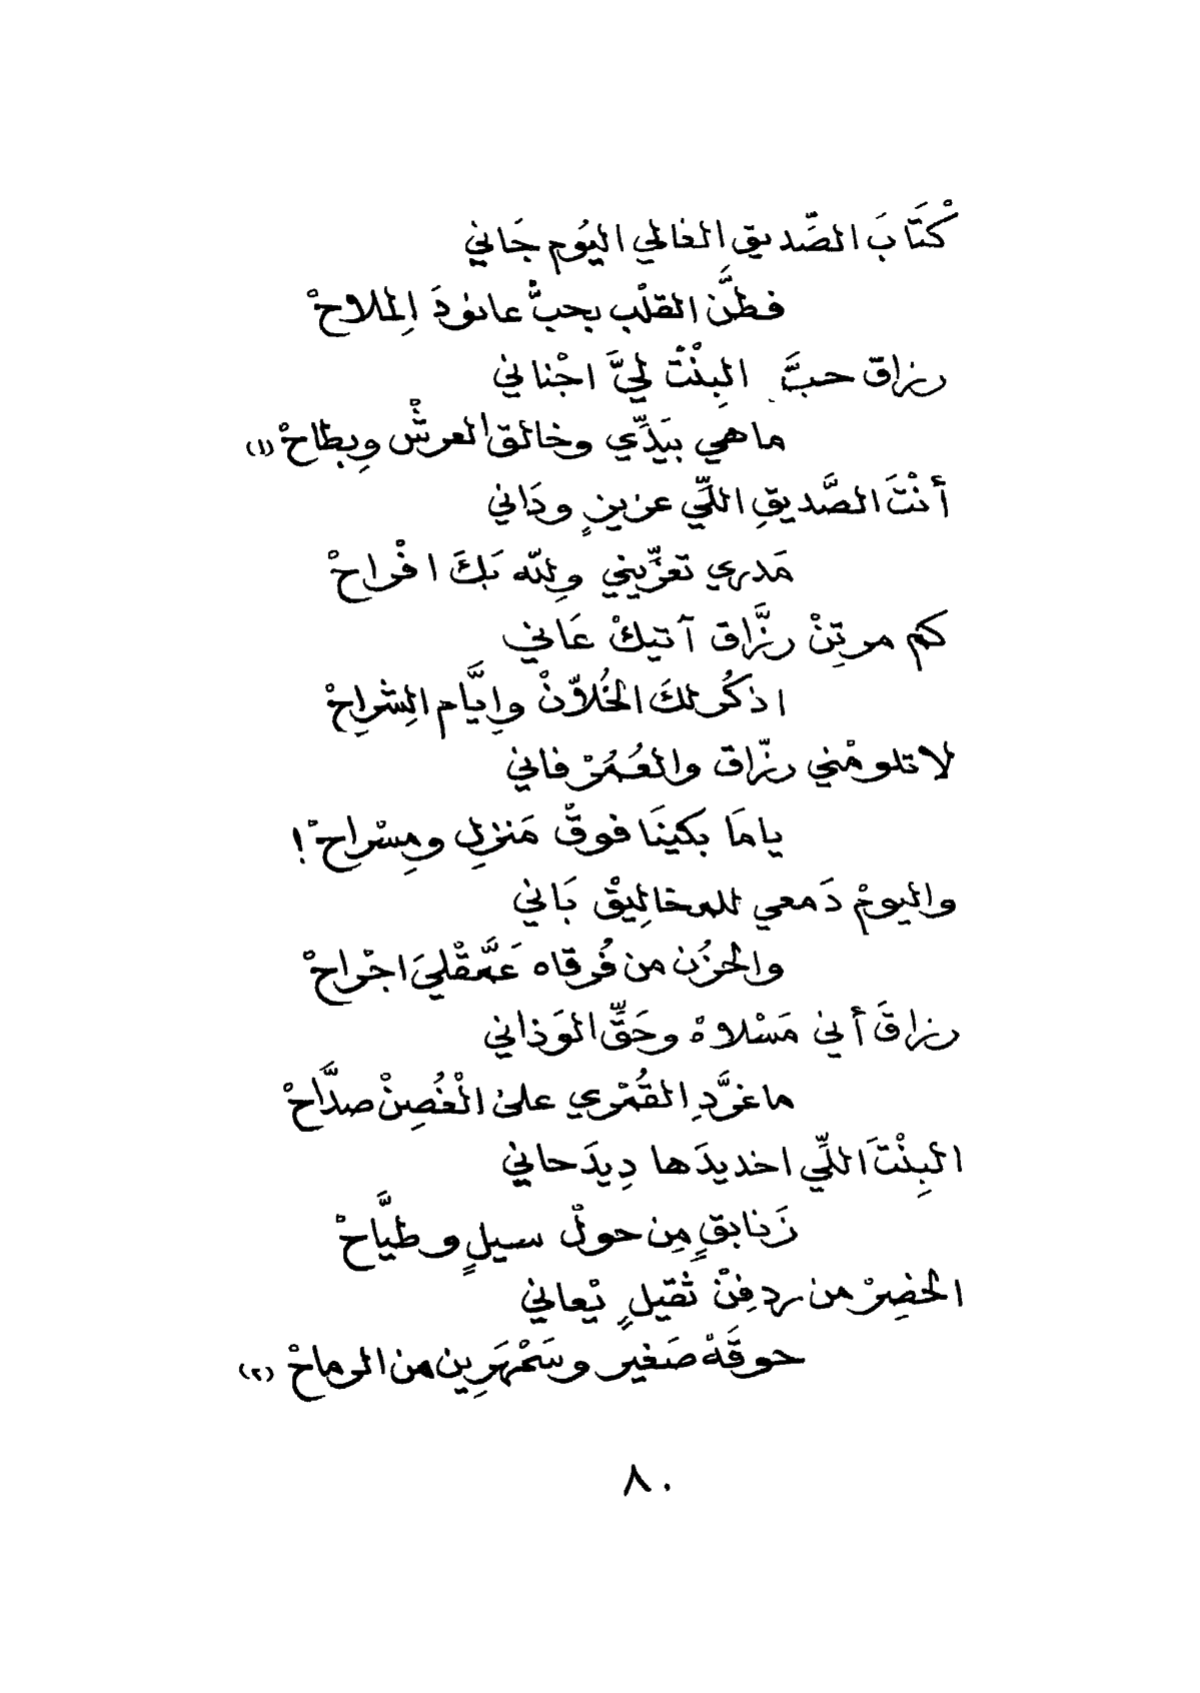 كْتَابَ الصّديقِ الغالي اليُوم جَاني
فطَّن القلْب بحبُّ عانودَ اِلملاحْ
رزاق حبَّ البِنْتْ ليَّ اجْناني
ماهي بيَدِّي وخالق العرشْ وِبطاحْ (١)
أنْتَ الصَّديقِ اللّي عزيزٍ ودَاني
مَدري تعزِّيني ولِلّه بَكَ افْراحْ
كم مرتِنْ رزَّاق آتيكْ عَاني
اذكُر لكَ الخُلاّنْ وايَّام الِشراحْ
لا تلومْني رزّاق والعُمُرْ فاني
ياما بكينَا فوقْ مَنزلِ ومِسْراحْ !
واليومْ دَمعي للمخالِيقْ بَاني
والحزُن من فُرقاه عَمَّقْليَ اجْراحْ
رزاقَ أني مَسْلاهْ وحَقِّ الوَذاني
ماغرَّدِ القُمْري على الْغُصِنْ صدَّاحْ
البِنْتَ اللّي اخديدَها دِيدَحاني
زَنابقٍ مِن حولْ سيلٍ وطيَّاحْ
الخضِرْ من ردفِنْ ثقيلٍ يْعاني
حوقَهْ صَغير وسَمْهَرِين من الرماحْ (٢)
٨٠